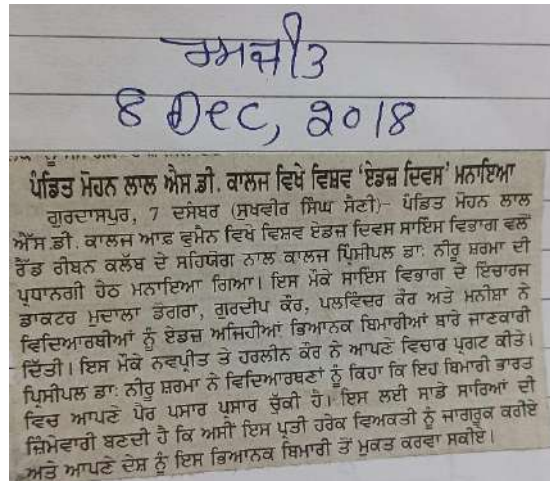 ਚਮਜੀਤ
8 Dec, 2018
ਪੰਡਿਤ ਮੋਹਨ ਲਾਲ ਐਸ.ਡੀ. ਕਾਲਜ ਵਿਖੇ ਵਿਸ਼ਵ 'ਏਡਜ਼ ਦਿਵਸ' ਮਨਾਇਆ
ਗੁਰਦਾਸਪੁਰ, 7 ਦਸੰਬਰ (ਸੁਖਵੀਰ ਸਿੰਘ ਸੈਣੀ)- ਪੰਡਿਤ ਮੋਹਨ ਲਾਲ
ਐੱਸ.ਡੀ. ਕਾਲਜ ਆਫ਼ ਵੂਮੈਨ ਵਿਖੇ ਵਿਸ਼ਵ ਏਡਜ਼ ਦਿਵਸ ਸਾਇੰਸ ਵਿਭਾਗ ਵਲੋਂ
ਰੈੱਡ ਰੀਬਨ ਕਲੱਬ ਦੇ ਸਹਿਯੋਗ ਨਾਲ ਕਾਲਜ ਪ੍ਰਿੰਸੀਪਲ ਡਾ: ਨੀਰੂ ਸ਼ਰਮਾ ਦੀ
ਪ੍ਰਧਾਨਗੀ ਹੇਠ ਮਨਾਇਆ ਗਿਆ। ਇਸ ਮੌਕੇ ਸਾਇੰਸ ਵਿਭਾਗ ਦੇ ਇੰਚਾਰਜ
ਡਾਕਟਰ ਮੁਦਾਲਾ ਡੋਗਰਾ, ਗੁਰਦੀਪ ਕੌਰ, ਪਲਵਿੰਦਰ ਕੌਰ ਅਤੇ ਮਨੀਸ਼ਾ ਨੇ
ਵਿਦਿਆਰਥੀਆਂ ਨੂੰ ਏਡਜ਼ ਅਜਿਹੀਆਂ ਭਿਆਨਕ ਬਿਮਾਰੀਆਂ ਬਾਰੇ ਜਾਣਕਾਰੀ
ਦਿੱਤੀ। ਇਸ ਮੌਕੇ ਨਵਪ੍ਰੀਤ ਤੇ ਹਰਲੀਨ ਕੌਰ ਨੇ ਆਪਣੇ ਵਿਚਾਰ ਪ੍ਰਗਟ ਕੀਤੇ।
ਪ੍ਰਿੰਸੀਪਲ ਡਾ: ਨੀਰੂ ਸ਼ਰਮਾ ਨੇ ਵਿਦਿਆਰਥਣਾਂ ਨੂੰ ਕਿਹਾ ਕਿ ਇਹ ਬਿਮਾਰੀ ਭਾਰਤ
ਵਿਚ ਆਪਣੇ ਪੈਰ ਪਸਾਰ ਪਸਾਰ ਚੁੱਕੀ ਹੈ। ਇਸ ਲਈ ਸਾਡੇ ਸਾਰਿਆਂ ਦੀ
ਜ਼ਿੰਮੇਵਾਰੀ ਬਣਦੀ ਹੈ ਕਿ ਅਸੀਂ ਇਸ ਪ੍ਰਤੀ ਹਰੇਕ ਵਿਅਕਤੀ ਨੂੰ ਜਾਗਰੂਕ ਕਰੀਏ
ਅਤੇ ਆਪਣੇ ਦੇਸ਼ ਨੂੰ ਇਸ ਭਿਆਨਕ ਬਿਮਾਰੀ ਤੋਂ ਮੁਕਤ ਕਰਵਾ ਸਕੀਏ।